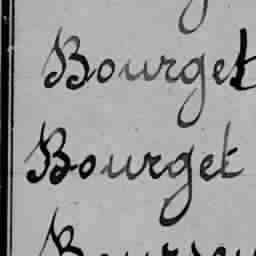 Bourget
Bourget